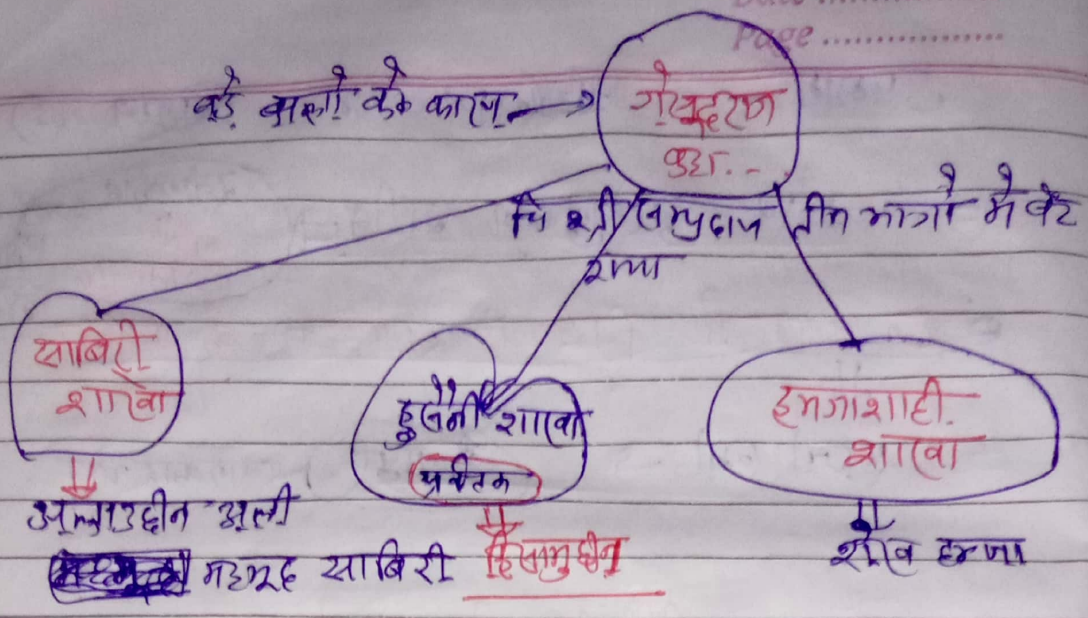 Date ..........
Page ..................
बड़े बालो के कारण → गेसूदराज
कहा. --
चिश्ती सम्प्रदाय तीन भागो मे बंट
गया
साबिरी
शाखा
हुसैनी शाखा
प्रर्वतक
हमजाशाही
शाखा
अलाउद्दीन अली
महमूद साबिरी
हिसामुद्दीन
शेख हमजा